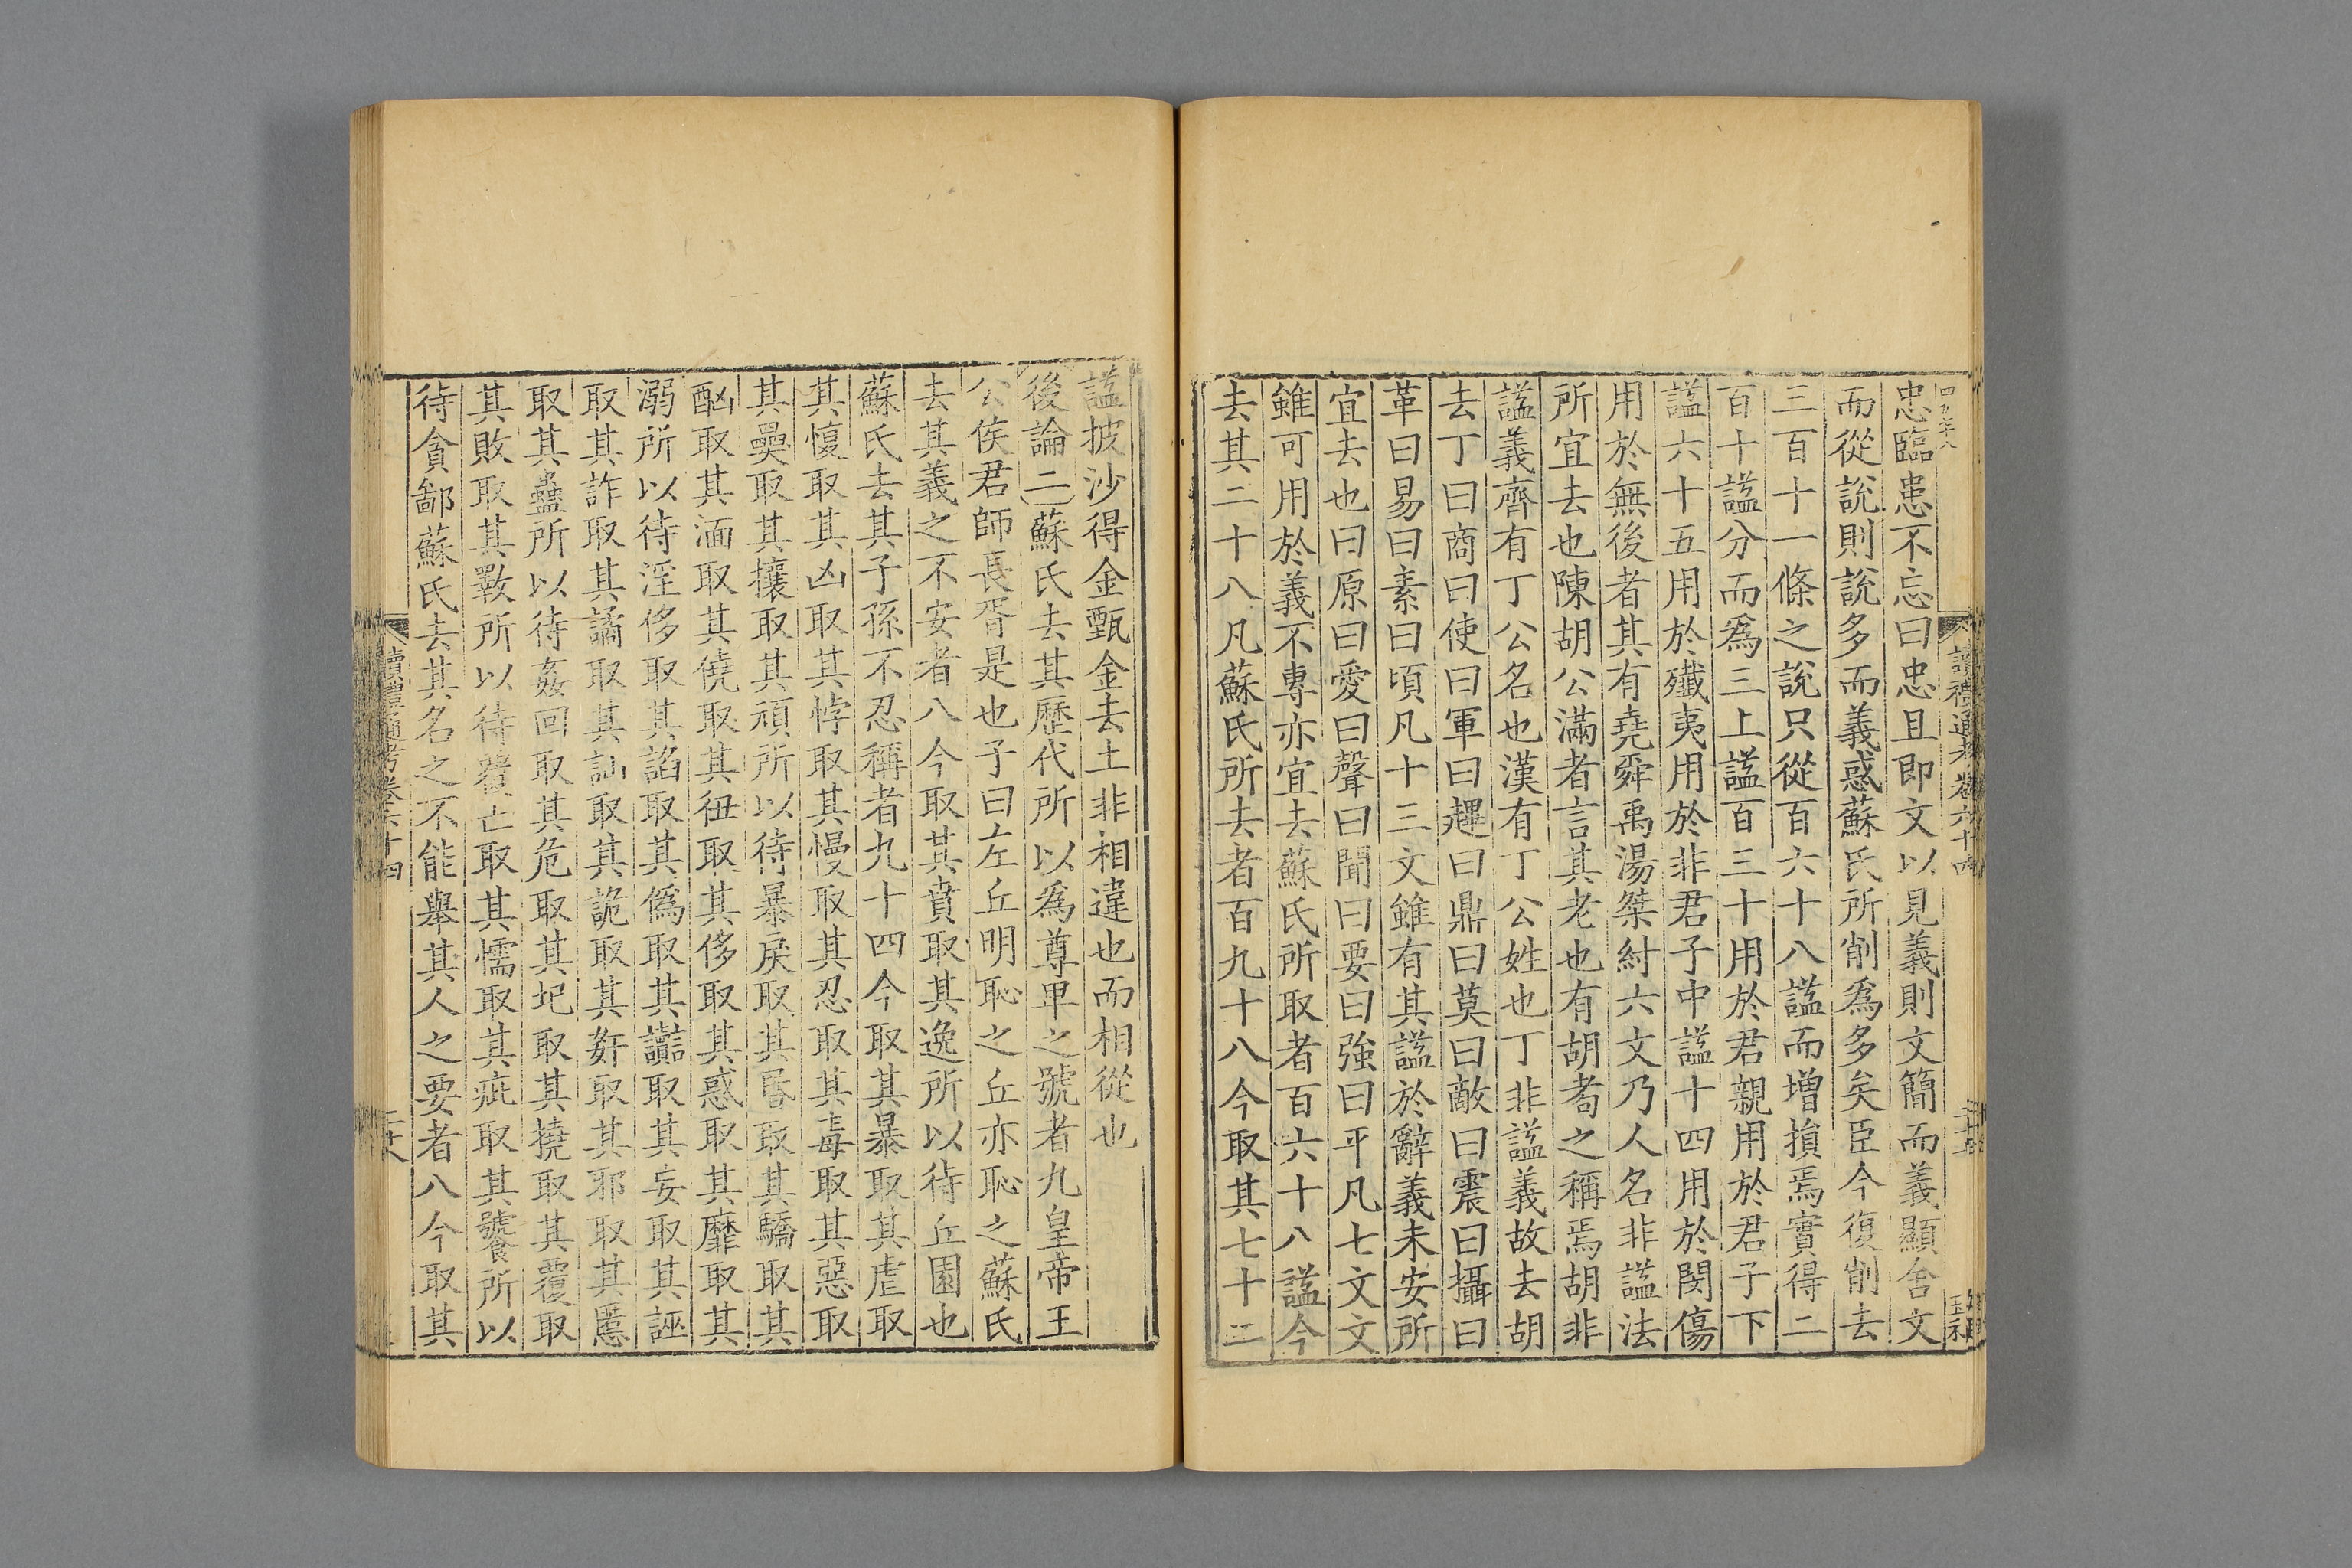 忠臨患不忘曰忠且即文以見義則文簡而義顯舍文
而從說則說多而義惑蘇氏所削爲多矣臣今復削去
三百十一條之說只從百六十八諡而增損焉實得二
百十諡分而爲三上諡百三十用於君親用於君子下
諡六十五用於殲夷用於非君子中諡十四用於閔傷
用於無後者其有堯舜禹湯桀紂六文乃人名非諡法
所宜去也陳胡公滿者言其老也有胡耇之稱焉胡非
諡義齊有丁公名也漢有丁公姓也丁非諡義故去胡
去丁曰商曰使曰軍曰趯曰鼎曰莫曰敵曰震曰攝曰
革曰易曰素曰頃凡十三文雖有其諡於辭義未安所
宜去也曰原曰愛曰聲曰聞曰要曰強曰平凡七文文
雖可用於義不專亦宜去蘇氏所取者百六十八諡今
去其二十八凡蘇氏所去者百九十八今取其七十二
諡披沙得金甄金去土非相違也而相從也
後論二蘇氏去其歷代所以爲尊卑之號者九皇帝王
公侯君師長胥是也子曰左丘明恥之丘亦恥之蘇氏
去其義之不安者八今取其賁取其逸所以待丘園也
蘇氏去其子孫不忍稱者九十四今取其暴取其虐取
其愎取其凶取其悖取其慢取其忍取其毒取其惡取
其奰取其攘取其頑所以待暴戾取其昏取其驕取其
酗取其湎取其僥取其狃取其侈取其惑取其靡取其
溺所以待淫侈取其諂取其僞取其讒取其妄取其誣
取其詐取其譎取其訕取其詭取其奸取其邪取其慝
取其蠱所以待姦回取其危取其圮取其撓取其覆取
其敗取其斁所以待覆亡取其懦取其疵取其饕所以
待貪鄙蘇氏去其名之不能舉其人之要者八今取其
讀禮通考卷六十四
讀禮通考卷六十四